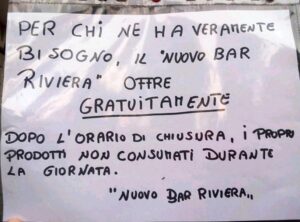 PER CHI NE HA VERAMENTE
BISOGNO, IL "NUOVO BAR
RIVIERA" OFFRE
GRATUITAMENTE
DOPO L'ORARIO DI CHIUSURA, i PROPRI
PRODOTTI NON CONSUMATI DURANTE
LA GIORNATA.
"NUOVO BAR RIVIERA"